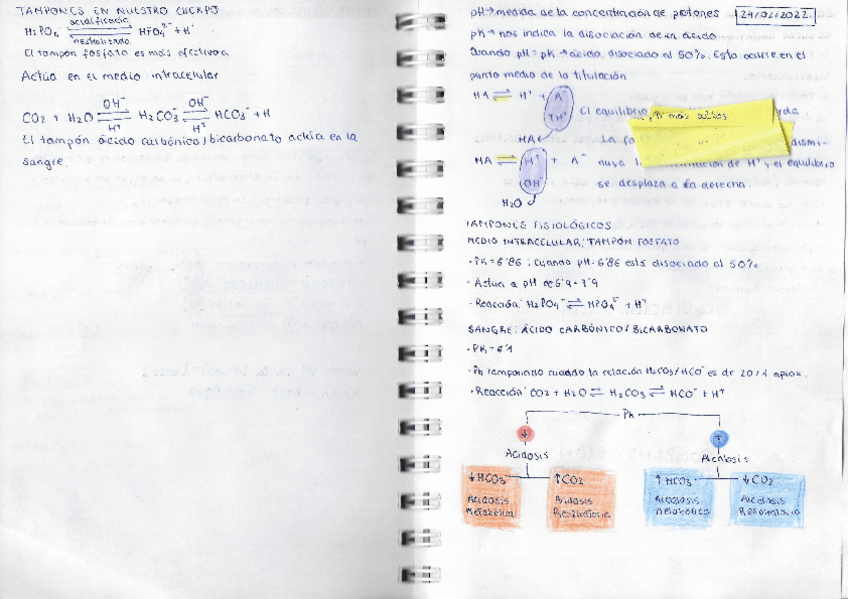 TAMPONES EN NUESTRO CUERPO
acidificación
H₂PO₄⁻ ⇌ HPO₄²⁻ + H⁺
neutralizado
El tampón fosfato es más efectivo
Actúa en el medio intracelular
OH⁻ OH⁻
CO2 + H2O ⇌ H2CO3 ⇌ HCO3⁻ + H
H⁺ H⁺
El tampón ácido carbónico/bicarbonato actúa en la
sangre.
pH → medida de la concentración de protones 24/02/2022
pK → nos indica la disociación de un ácido
Cuando pH = pK → ácido disociado al 50%. Esto ocurre en el
punto medio de la titulación
HA ⇌ H⁺ + A⁻
↑H⁺ El equilibrio
HA
más
La
HA ⇌ H⁺ + A⁻ nuya de H⁺, el equilibrio
OH⁻ se desplaza a la derecha.
H2O
TAMPONES FISIOLÓGICOS
MEDIO INTRACELULAR: TAMPÓN FOSFATO
· PK = 6'86 : Cuando pH = 6'86 está disociado al 50%
· Actúa a pH de 5'9 - 7'9
· Reacción: H2PO4⁻ ⇌ HPO4²⁻ + H⁺
SANGRE: ÁCIDO CARBÓNICO/BICARBONATO
· PK = 6'1
· Ph tamponado cuando la relación H2CO3/HCO⁻ es de 20/1 aprox.
· Reacción: CO2 + H2O ⇌ H2CO3 ⇌ HCO⁻ + H⁺
Ph
↓ ↑
Acidosis Alcalosis
↓HCO3⁻ ↑CO2 ↑HCO3⁻ ↓CO2
Acidosis Acidosis Alcalosis Alcalosis
Metabólica Respiratoria Metabólica Respiratoria